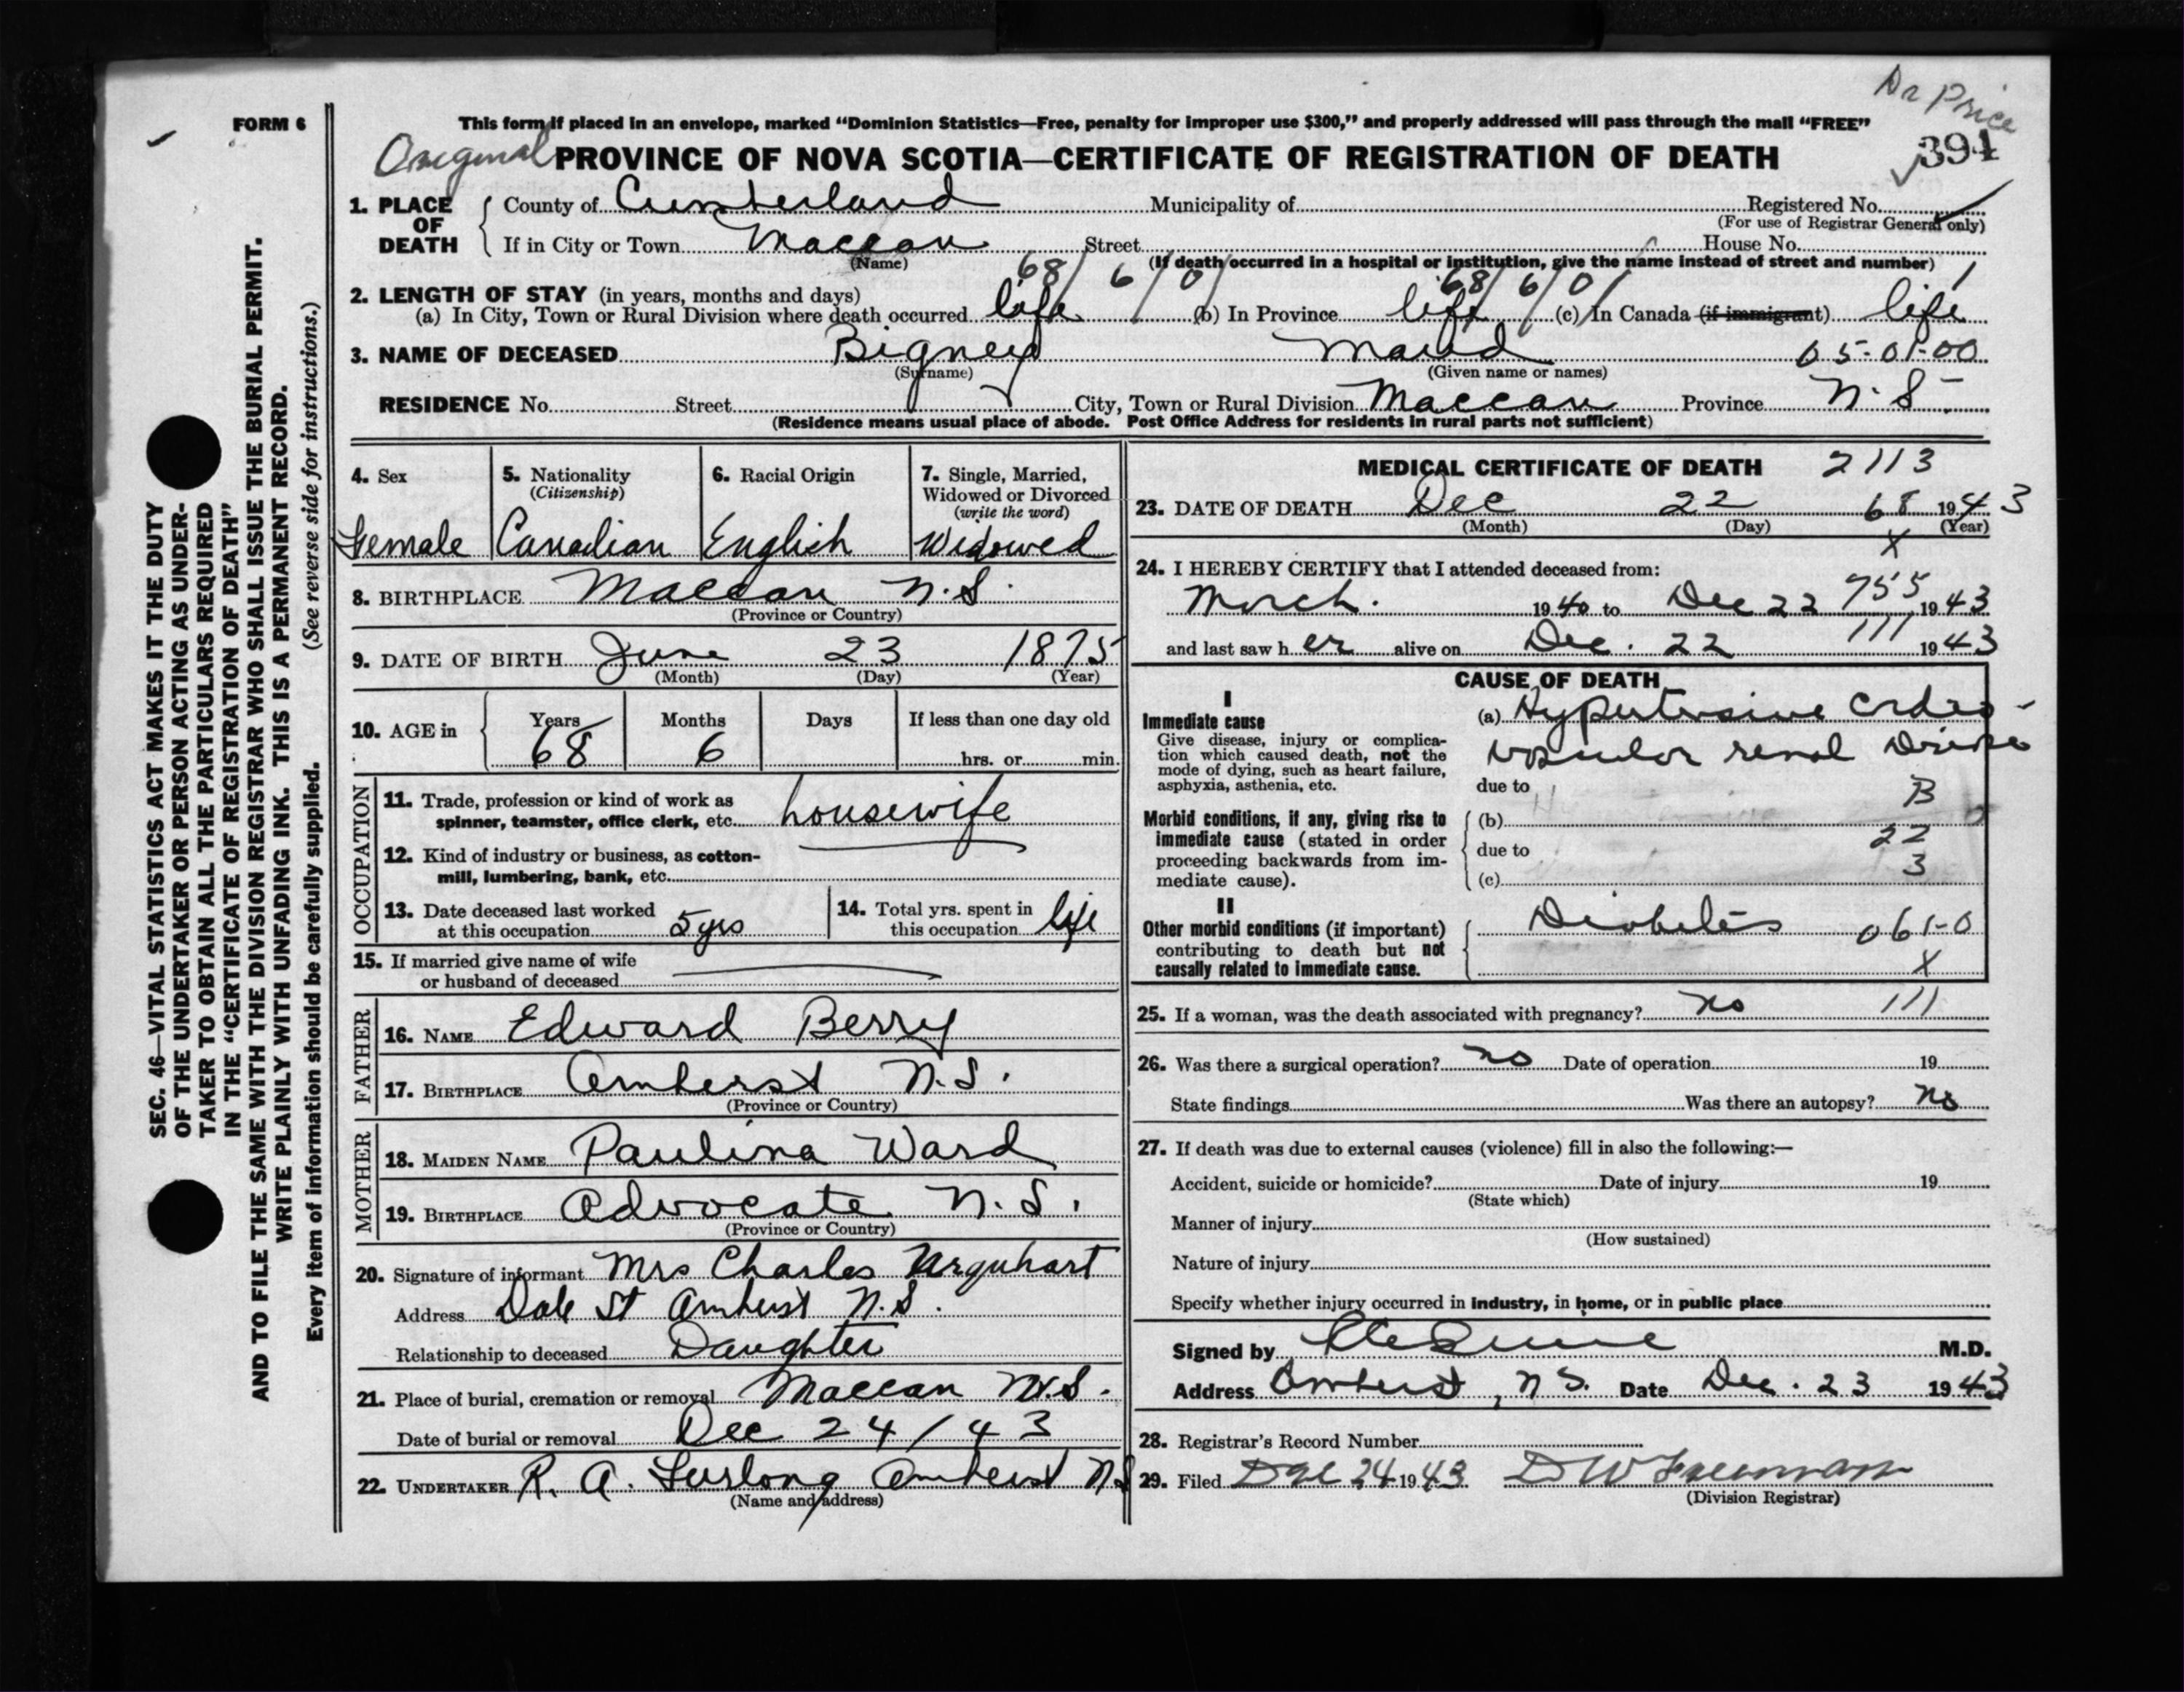 Dr Price
FORM 6
This form if placed in an envelope, marked “Dominion Statistics—Free, penalty for improper use $300,” and properly addressed will pass through the mail “FREE”
Original PROVINCE OF NOVA SCOTIA—CERTIFICATE OF REGISTRATION OF DEATH 394
1. PLACE OF DEATH County of Cumberland Municipality of Registered No.
(For use of Registrar General only)
If in City or Town Maccan Street House No.
(Name) (If death occurred in a hospital or institution, give the name instead of street and number)
68/6/0/ 68/6/0/ 1
2. LENGTH OF STAY (in years, months and days)
(a) In City, Town or Rural Division where death occurred life (b) In Province life (c) In Canada (if immigrant) life
3. NAME OF DECEASED Bigney Maud 05-01-00
(Surname) (Given name or names)
RESIDENCE No. Street City, Town or Rural Division Maccan Province N.S.
(Residence means usual place of abode. Post Office Address for residents in rural parts not sufficient)
SEC. 46—VITAL STATISTICS ACT MAKES IT THE DUTY
OF THE UNDERTAKER OR PERSON ACTING AS UNDER-
TAKER TO OBTAIN ALL THE PARTICULARS REQUIRED
IN THE “CERTIFICATE OF REGISTRATION OF DEATH”
AND TO FILE THE SAME WITH THE DIVISION REGISTRAR WHO SHALL ISSUE THE BURIAL PERMIT.
WRITE PLAINLY WITH UNFADING INK. THIS IS A PERMANENT RECORD.
Every item of information should be carefully supplied. (See reverse side for instructions.)
4. Sex 5. Nationality (Citizenship) 6. Racial Origin 7. Single, Married, Widowed or Divorced (write the word)
Female Canadian English Widowed
8. BIRTHPLACE Maccan N.S.
(Province or Country)
9. DATE OF BIRTH June 23 1875
(Month) (Day) (Year)
10. AGE in Years Months Days If less than one day old
68 6 hrs. or min.
OCCUPATION
11. Trade, profession or kind of work as
spinner, teamster, office clerk, etc. housewife
12. Kind of industry or business, as cotton-
mill, lumbering, bank, etc.
13. Date deceased last worked
at this occupation 5 yrs
14. Total yrs. spent in
this occupation life
15. If married give name of wife
or husband of deceased
FATHER
16. NAME Edward Berry
17. BIRTHPLACE Amherst N.S.
(Province or Country)
MOTHER
18. MAIDEN NAME Paulina Ward
19. BIRTHPLACE Advocate N.S.
(Province or Country)
20. Signature of informant Mrs Charles Urquhart
Address Dale St Amherst N.S.
Relationship to deceased Daughter
21. Place of burial, cremation or removal Maccan N.S.
Date of burial or removal Dec 24/43
22. UNDERTAKER R. A. Furlong Amherst N.S
(Name and address)
MEDICAL CERTIFICATE OF DEATH 2113
23. DATE OF DEATH Dec 22 68 1943
(Month) (Day) (Year)
X
24. I HEREBY CERTIFY that I attended deceased from:
March. 1940 to Dec 22 755 1943
and last saw her alive on Dec. 22 111 1943
CAUSE OF DEATH
I
Immediate cause
Give disease, injury or complica-
tion which caused death, not the
mode of dying, such as heart failure,
asphyxia, asthenia, etc.
(a) Hypertensive Cardio-
vascular renal Disease
due to B
Morbid conditions, if any, giving rise to
immediate cause (stated in order
proceeding backwards from im-
mediate cause).
(b)
due to 22
(c) 3
II
Other morbid conditions (if important)
contributing to death but not
causally related to immediate cause.
Diabetes 061-0
X
25. If a woman, was the death associated with pregnancy? no 111
26. Was there a surgical operation? no Date of operation 19
State findings Was there an autopsy? No
27. If death was due to external causes (violence) fill in also the following:—
Accident, suicide or homicide? Date of injury 19
(State which)
Manner of injury
(How sustained)
Nature of injury
Specify whether injury occurred in industry, in home, or in public place
Signed by M.D.
Address Amherst, N.S. Date Dec. 23 1943
28. Registrar's Record Number
29. Filed Dec 24 1943 D W Freeman
(Division Registrar)